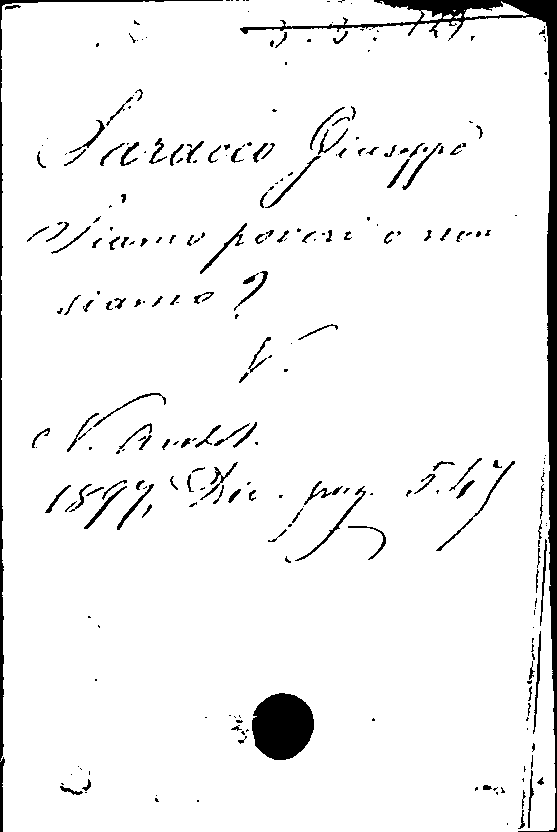 3. 3. 129.
Saracco Giuseppe
Siamo poveri o non
siamo?
V.
N. Antol.
1897, Dic. pag. 547